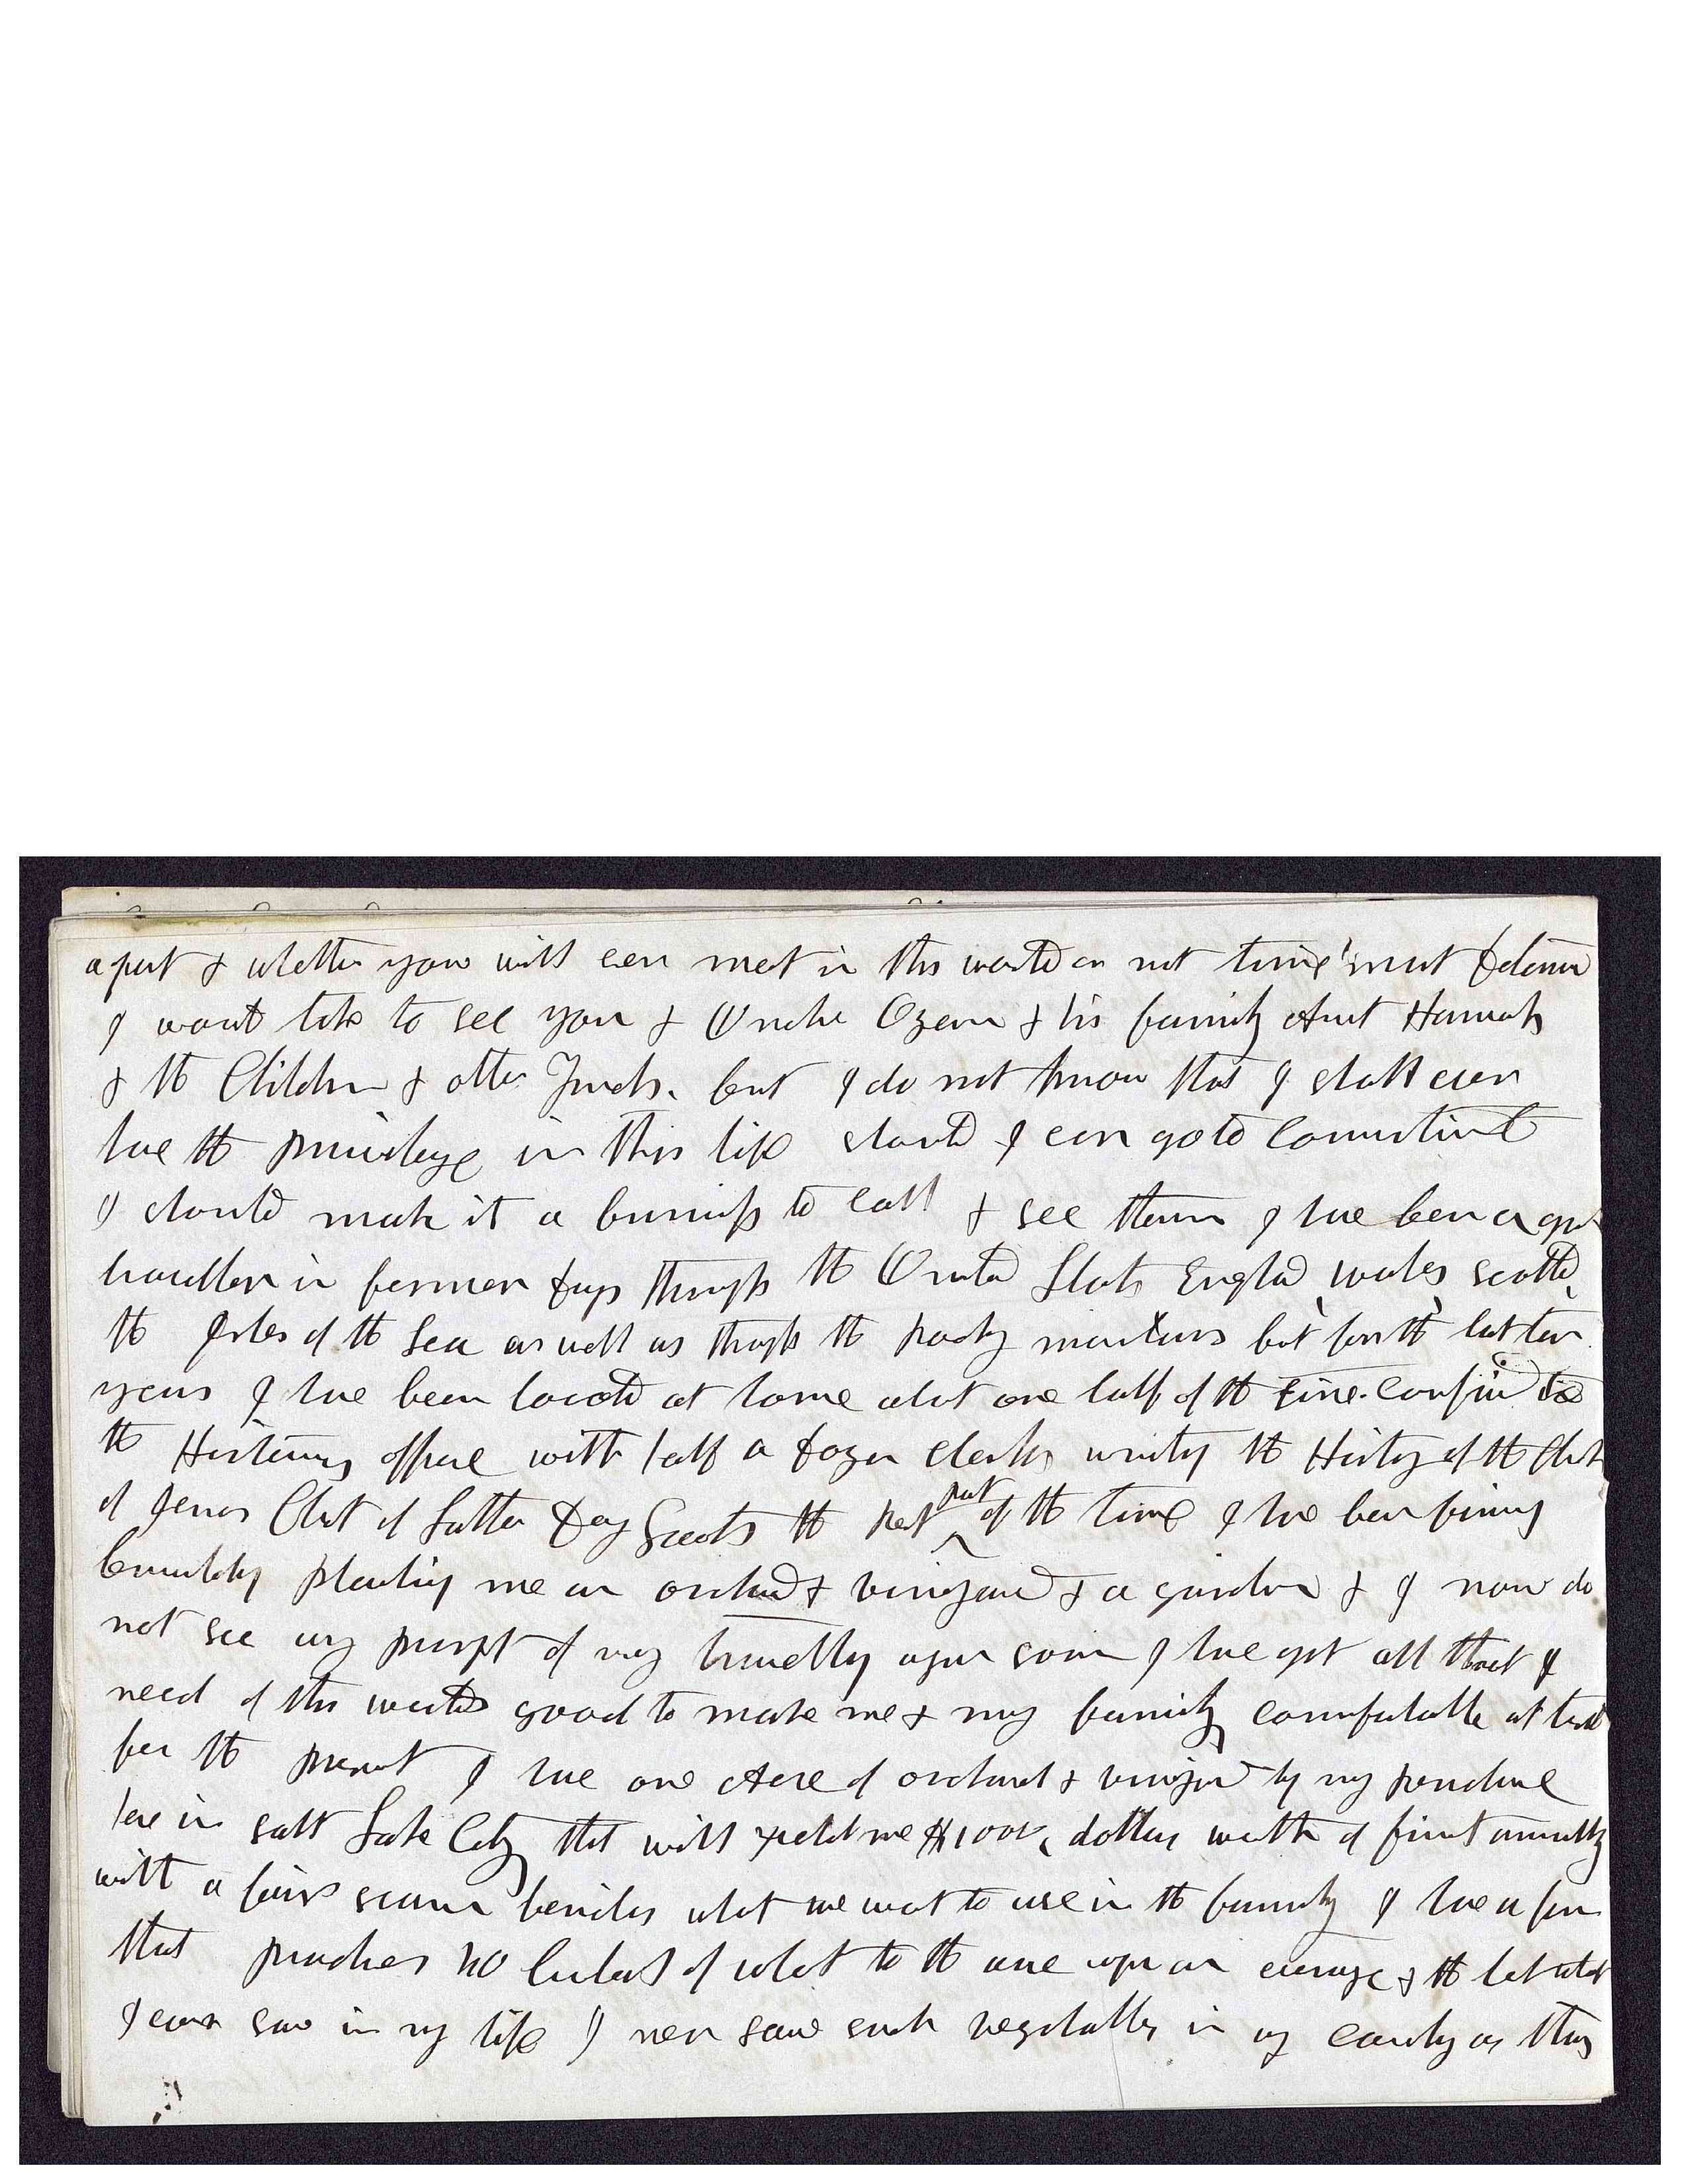 apart & whether you will ever meet in this world or not time must determin
I would like to see you & Uncle Ozem & his family Aunt Hannah
& the Childrn & other Frieds. but I do not know that I shall ever
have the privilege in this life should I ever go to Connecticut
I should make it a buisness to call & see them I have been a great
traveller in former days through the United States England, wales, scotld,
the Isles of the Sea as well as through the Rocky mountains but for the last ten
years I have been located at home about one half of the time confined to
the Historians office with half a dozen clerks writing the History of the Church
of Jesus Christ of Latter Day Saints the rest part of the time I have been farming
planting me an orchard & vineyard & a garden & I now do
not see any prospet of my travelling again soon I have got all that I
need of this worlds good to make me & my family comfortable at least
for the present I have one Acre of orchard & vineyard by my residence
here in Salt Lake City that will yield me $1000, dollars worth of fruit annually
with a fair season besides what we want to use in the family I have a farm
that produces 40 bushels of wheat to the acre upon an average & the best wheat
I ever saw in my life I never saw such vegetables in any country as this